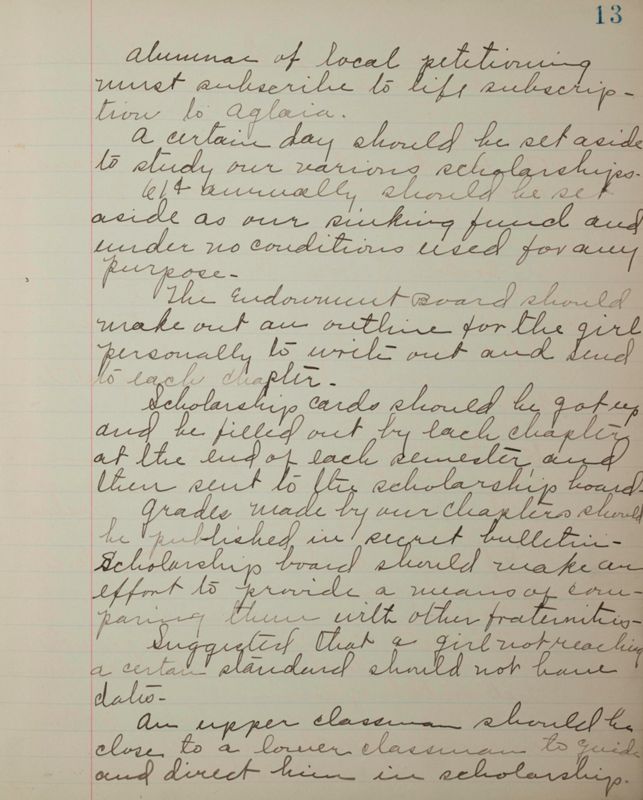 13
Alumnae of local petitioning
must subscribe to life subscrip-
tion to Aglaia.
A certain day should be set aside
to study our various scholarships.
annually should be set
aside as our sinking fund and
under no conditions used for any
purpose-
The Endowment Board should
make out an outline for the girl
personally to write out and send
to each chapter-
Scholarship cards should be got up
and be filled out by each chapter
at the end of each semester, and
then sent to the scholarship board
Grades made by our chapters should
be published in secret bulletin-
Scholarship board should make an
effort to provide a means of com-
paring them with other fraternities-
Suggested that a girl not reaching
a certain standard should not have
dates-
An upper classman should be
close to a lower classman to guide
and direct him in scholarship.